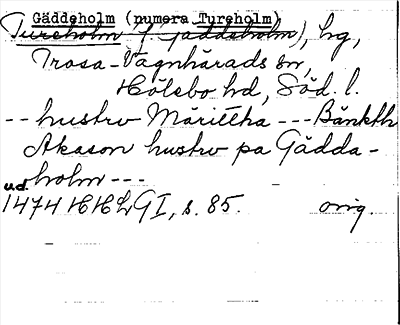 Gäddeholm (numera Tureholm)
Tureholm (f. Gäddeholm), hg,
Trosa-Vagnhärads sn,
Hölebo hd, Söd. l.
-- hustrv Märittha --- Bänkth
Akason hustrv pa Gädda-
holm ---
ud.
1474 HHLGI, s. 85. orig.